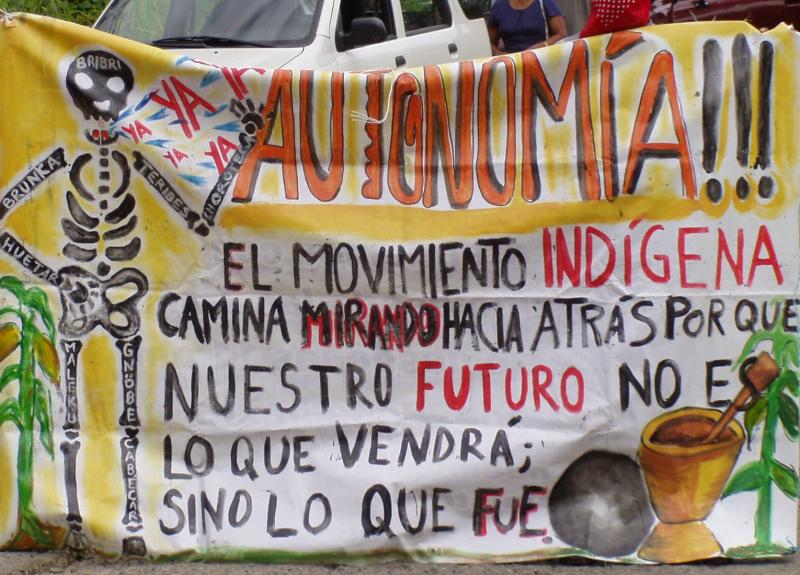 BRIBRI
YA
YA
YA
YA
YA
YA
AUTONOMÍA!!!
BRUNKA
TERIBES
CHOROTEGA
HUETAR
EL MOVIMIENTO INDÍGENA
CAMINA MIRANDO HACIA ATRÁS POR QUE
NUESTRO FUTURO NO ES
LO QUE VENDRÁ;
SINO LO QUE FUE.
MALEKU
GNÖBE
CABECAR